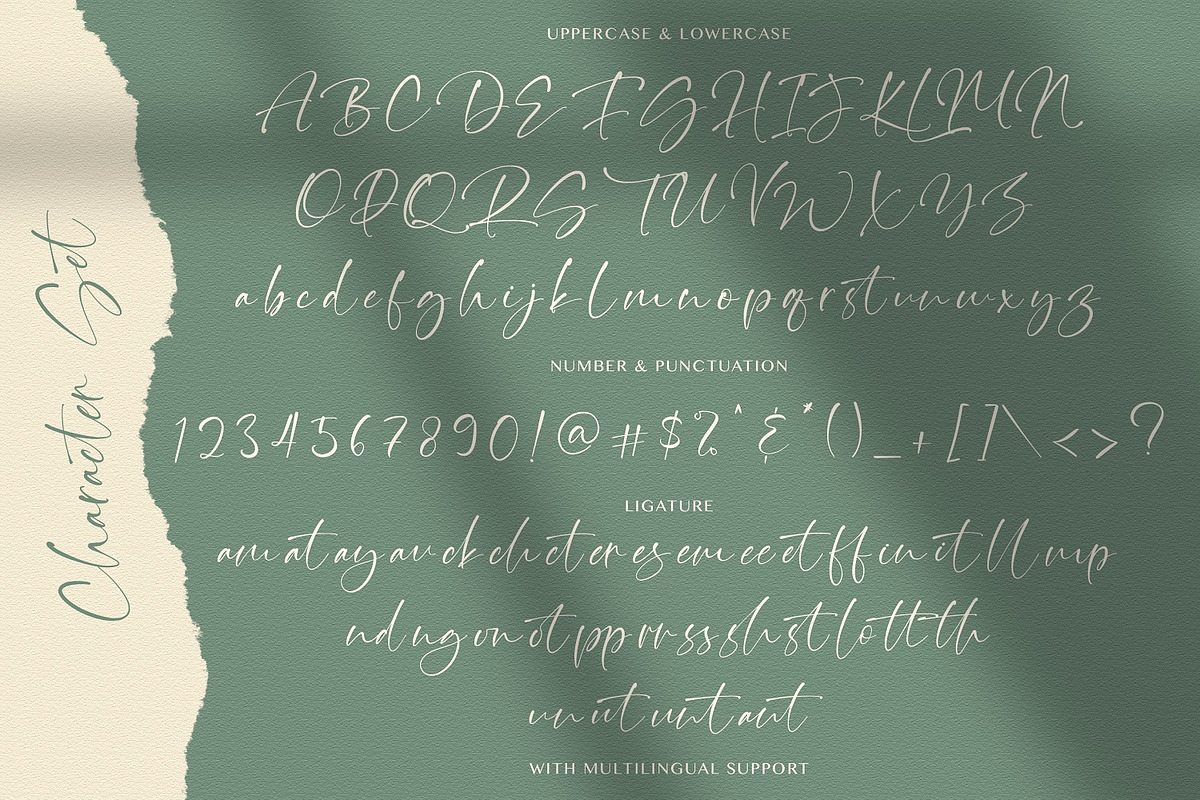 Character Set
UPPERCASE & LOWERCASE
A B C D E F G H I J K L M N
O P Q R S T U V W X Y Z
a b c d e f g h i j k l m n o p q r s t u v w x y z
NUMBER & PUNCTUATION
1 2 3 4 5 6 7 8 9 0 ! @ # $ % ^ & * ( ) _ + [ ] \ < > ?
LIGATURE
am at ay au ck ch ct er es em ee et ff in it ll mp
nd ng on ot pp rr ss sh st lo tt th
un ut unt ant
WITH MULTILINGUAL SUPPORT